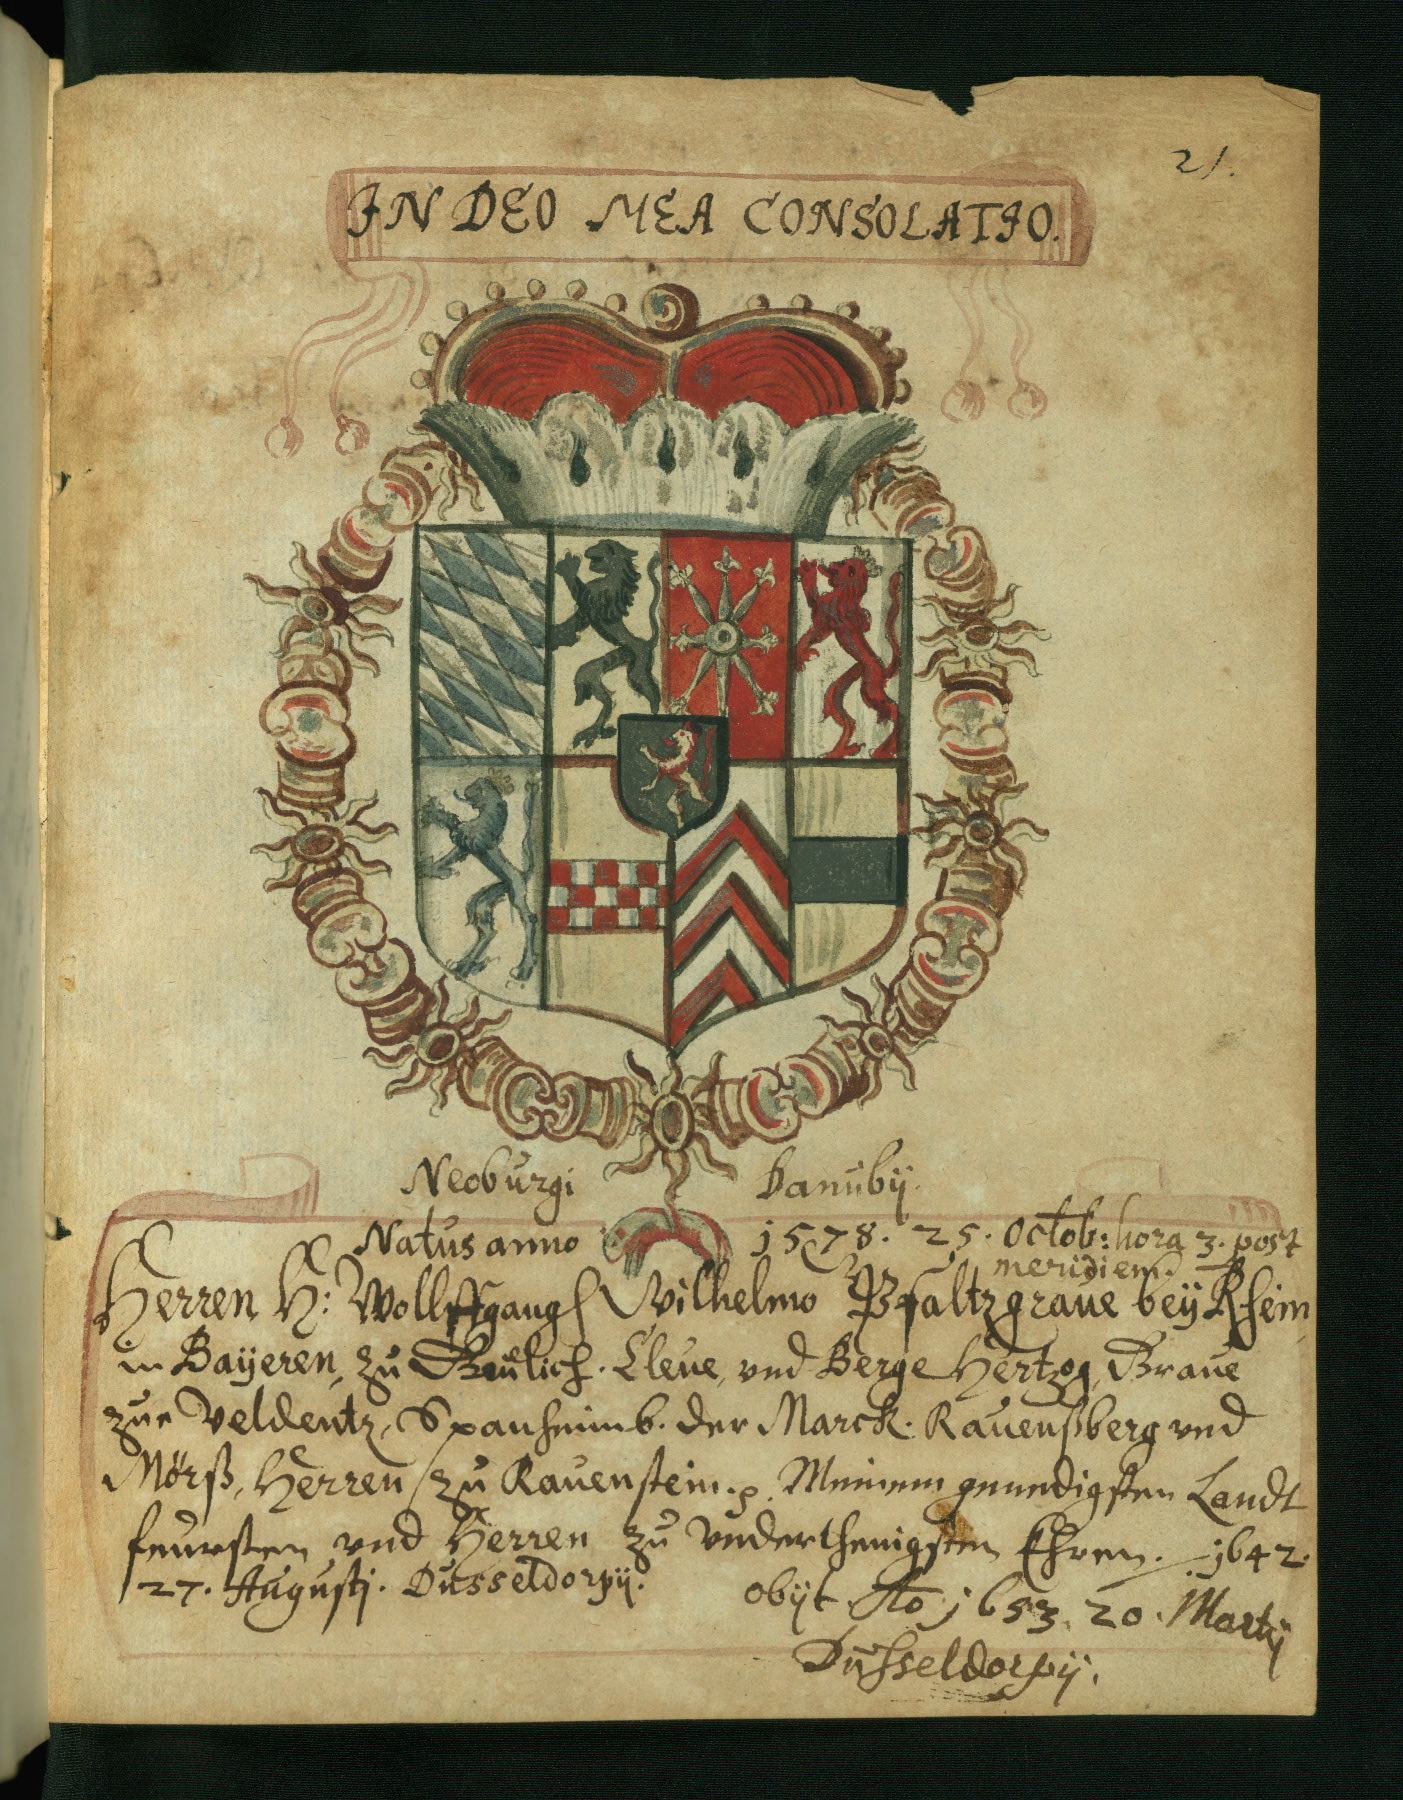 21.
IN DEO MEA CONSOLATIO.
Neoburgi Danubij.
Natus anno 1578. 25. Octob: hora 3. post
meridiem.
Herren H: Wolffgang Wilhelmo Pfaltzgraue beÿ Rhein
in Baÿeren, zu Geulich. Cleue, vnd Berge Hertzog, Graue
zue Veldentz, Spanheimb. der Marck. Rauenßberg vnd
Mörß, Herren zu Rauenstein. Meinem genedigsten Landt
feursten vnd Herren zu Vnderthenigsten Ehren. 1642.
27. Augustj. Dusseldorpij.
obijt Ao 1653. 20. Martij
Düsseldorpij.